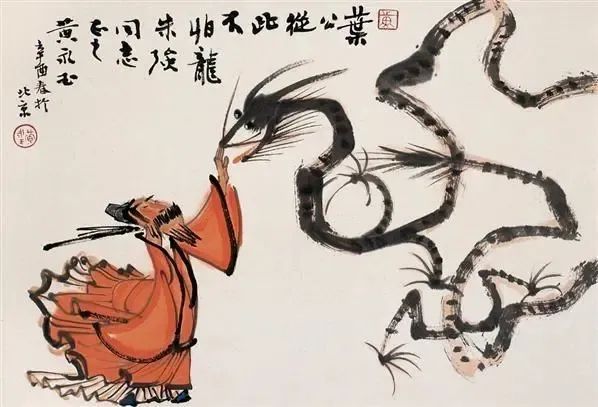 葉公從此不
怕龍
朱
同志
正之
黄永玉
辛酉春於
北京
黄